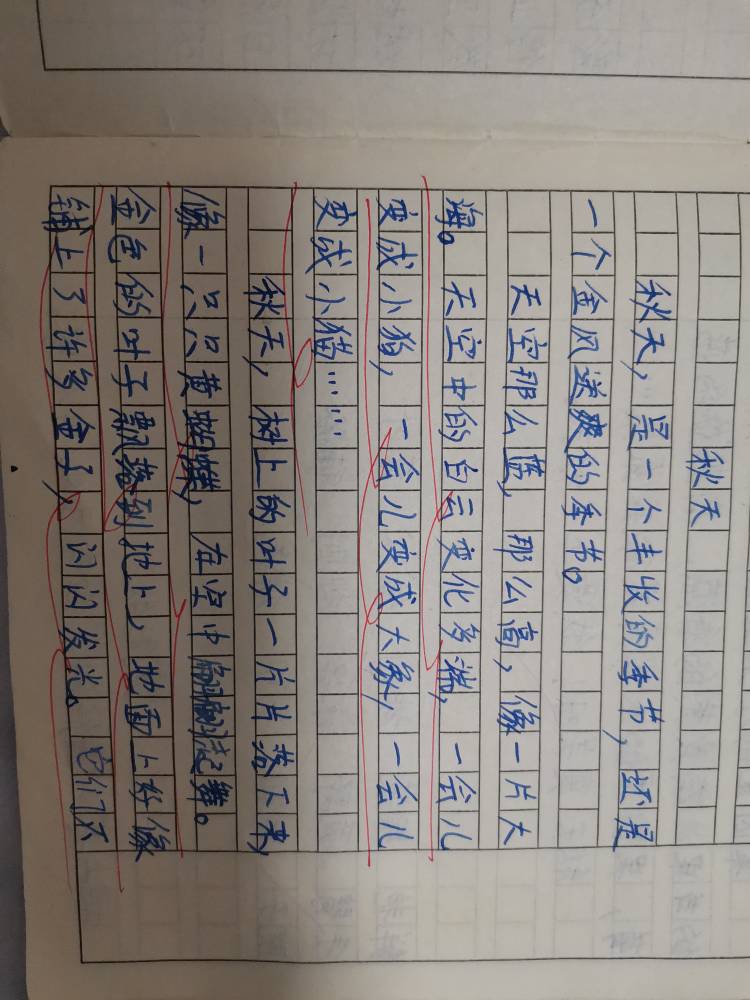 秋天
秋天，是一个丰收的季节，还是
一个金风送爽的季节。
天空那么蓝，那么高，像一片大
海。天空中的白云变化多端，一会儿
变成小狗，一会儿变成大象，一会儿
变成小猫……
秋天，树上的叶子一片片落下来，
像一只只黄蝴蝶，在空中翩翩起舞。
金色的叶子飘落到地上，地面上好像
铺上了许多金子，闪闪发光。它们不